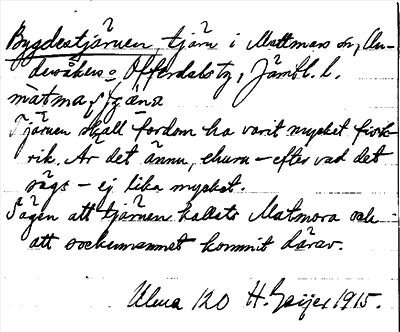 Bygdestjärnen, tjärn i Mattmars sn, Un-
dersåkers o. Offerdals tg, Jämtl. l.
Tjärnen skall fordom ha varit mycket fisk-
rik. Är det ännu, ehuru – efter vad det
sägs – ej lika mycket.
Sägen att tjärnen kallats Matmora och
att sockennamnet kommit därav.
Ulma 120 H. Geijer 1915.